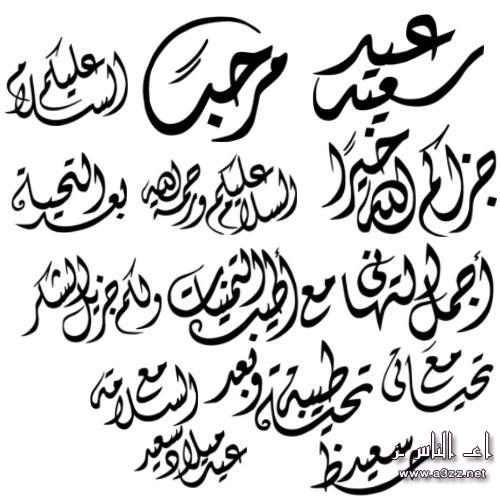 عيد سعيد
مرحباً
السلام عليكم
جزاكم الله خيراً
السلام عليكم ورحمة الله
بعد التحية
أجمل التهاني مع أطيب التمنيات ولكم جزيل الشكر
مع تحياتي
تحية طيبة وبعد
مع السلامة
عيد ميلاد سعيد
www.a3zz.net